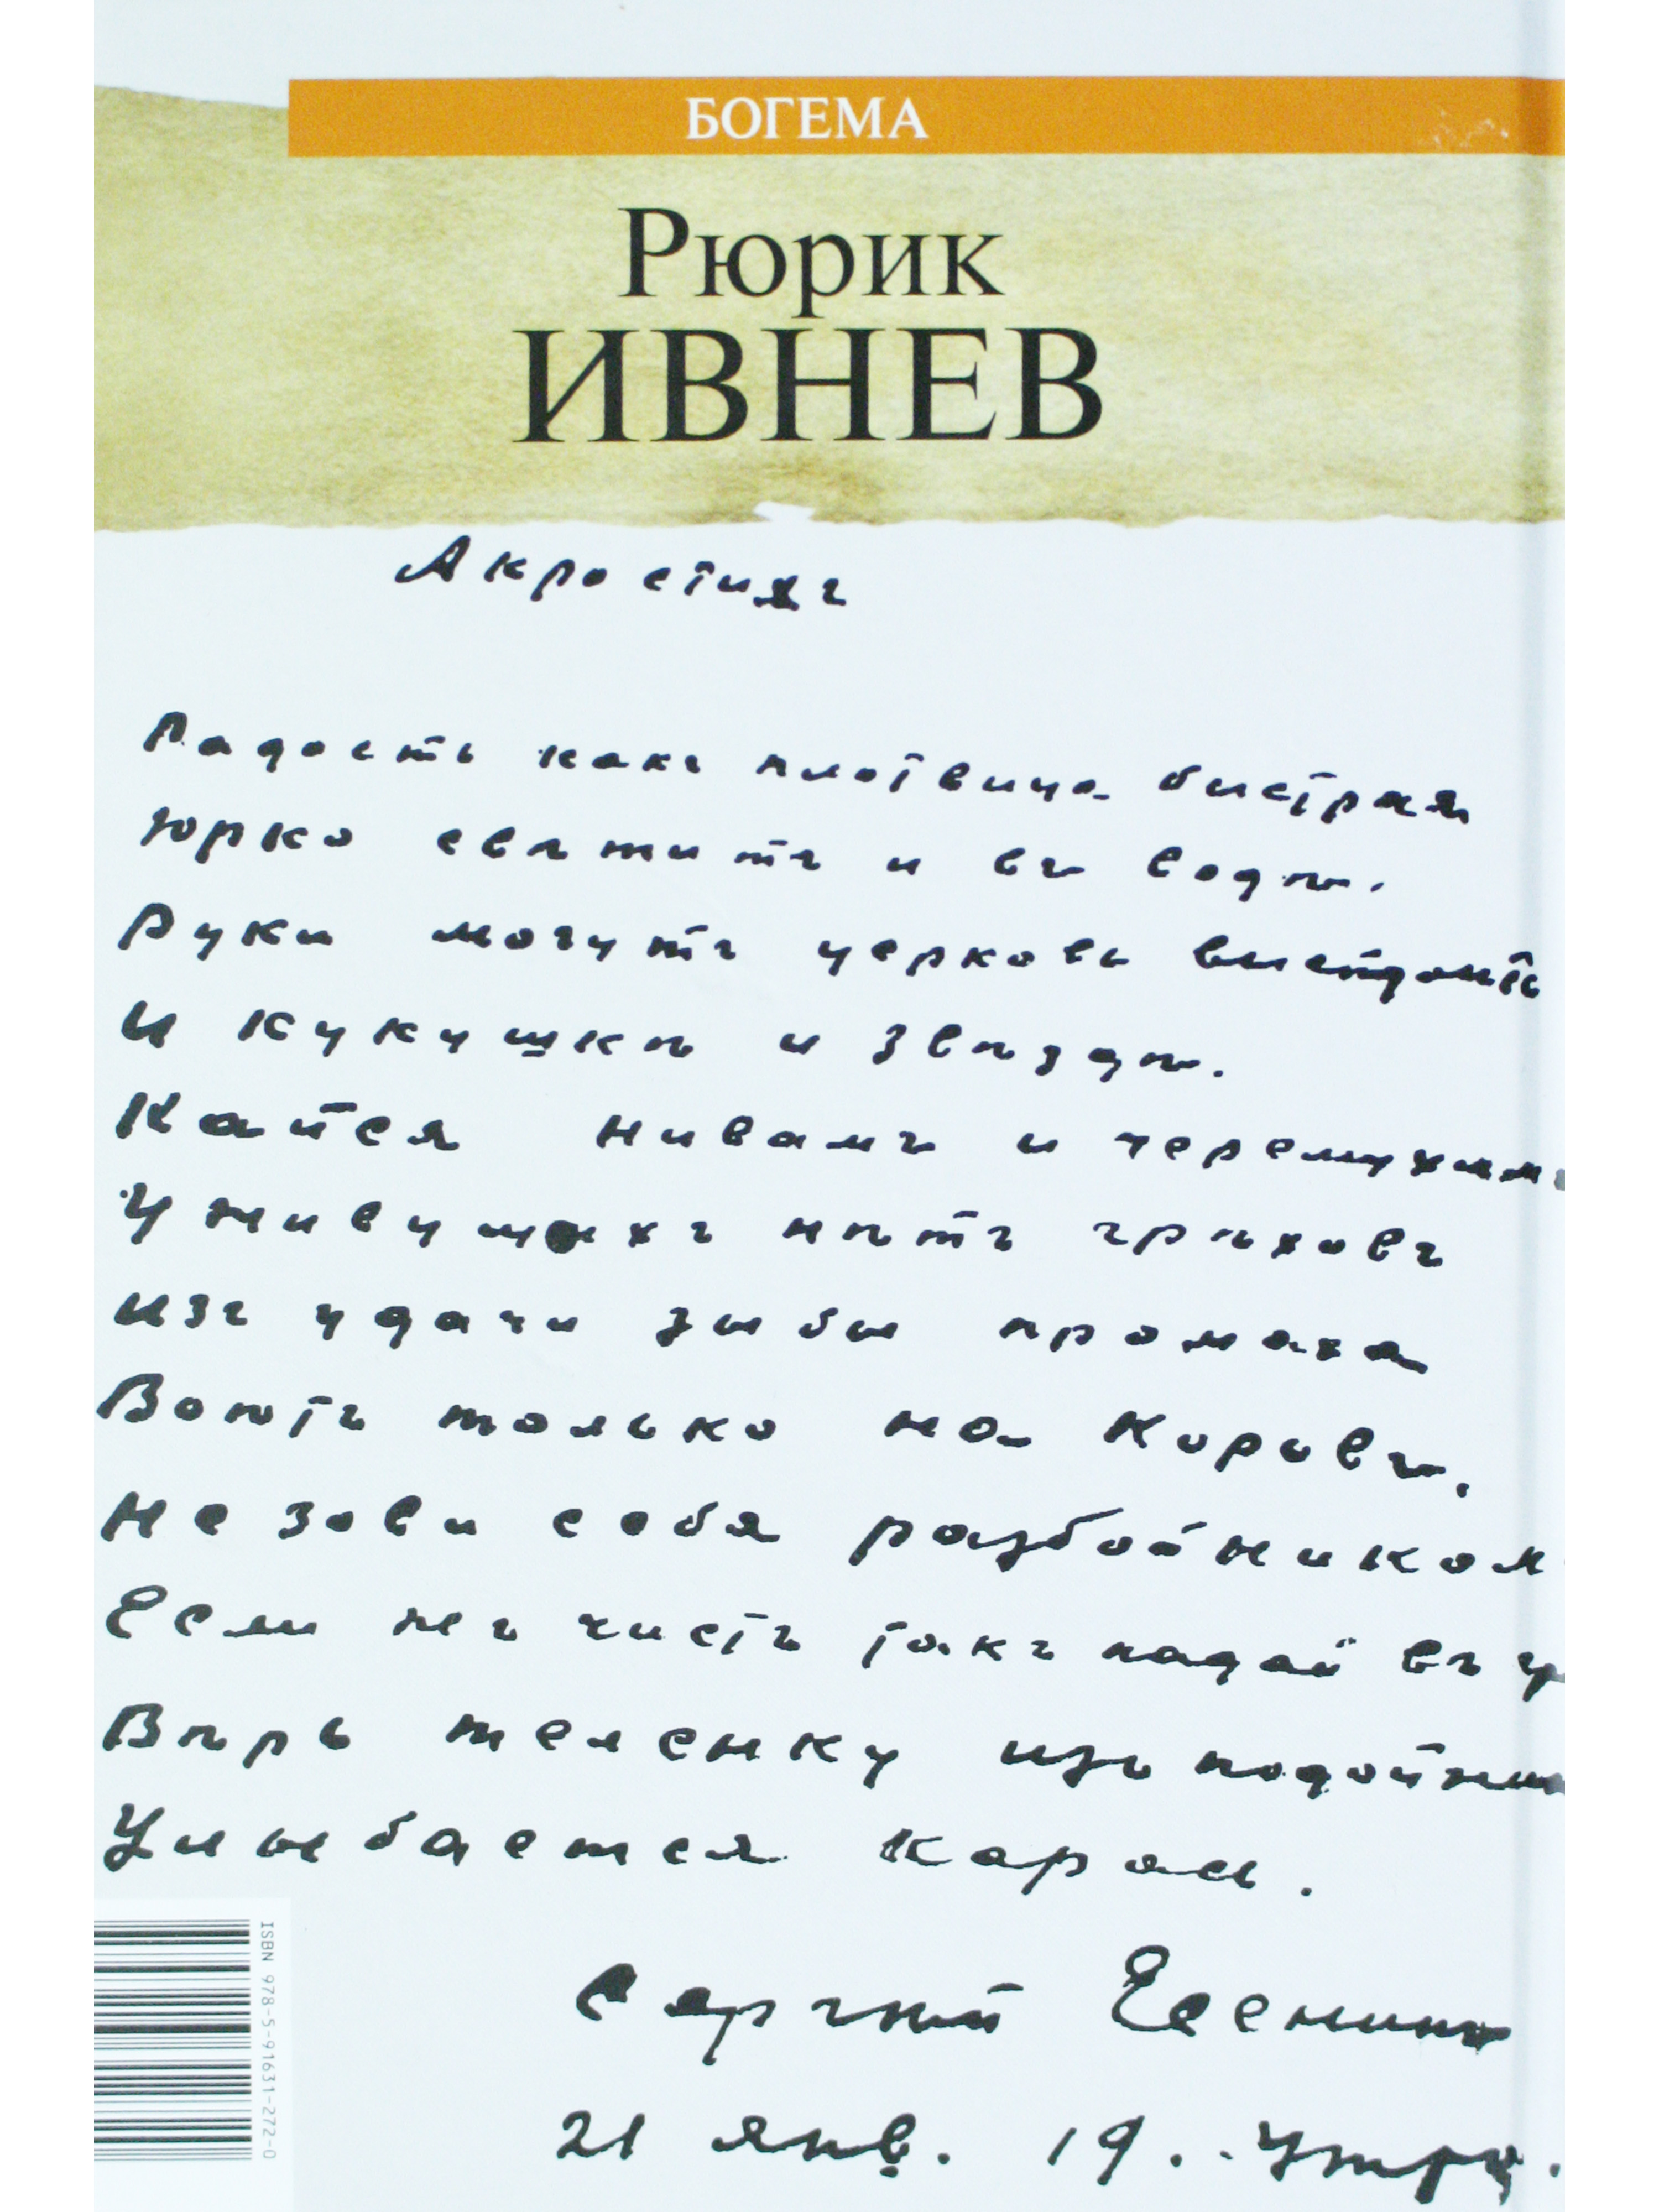 БОГЕМА
Рюрик
ИВНЕВ
Акростихъ
Радость какъ плотвица быстрая
Юрко светитъ и въ воде.
Руки могутъ церковь выстроить
И кукушке и звезде.
Кайся нивамъ и черемухам
У живущихъ нетъ греховъ
Изъ удачи зыбы промаха
Воютъ только на коровъ.
Не зови себя разбойником
Если ж чистъ такъ падай въ
Верь теленку изъ
Улыбается
Сергей Есенин
21 янв. 19. утро.
ISBN 978-5-91631-272-0